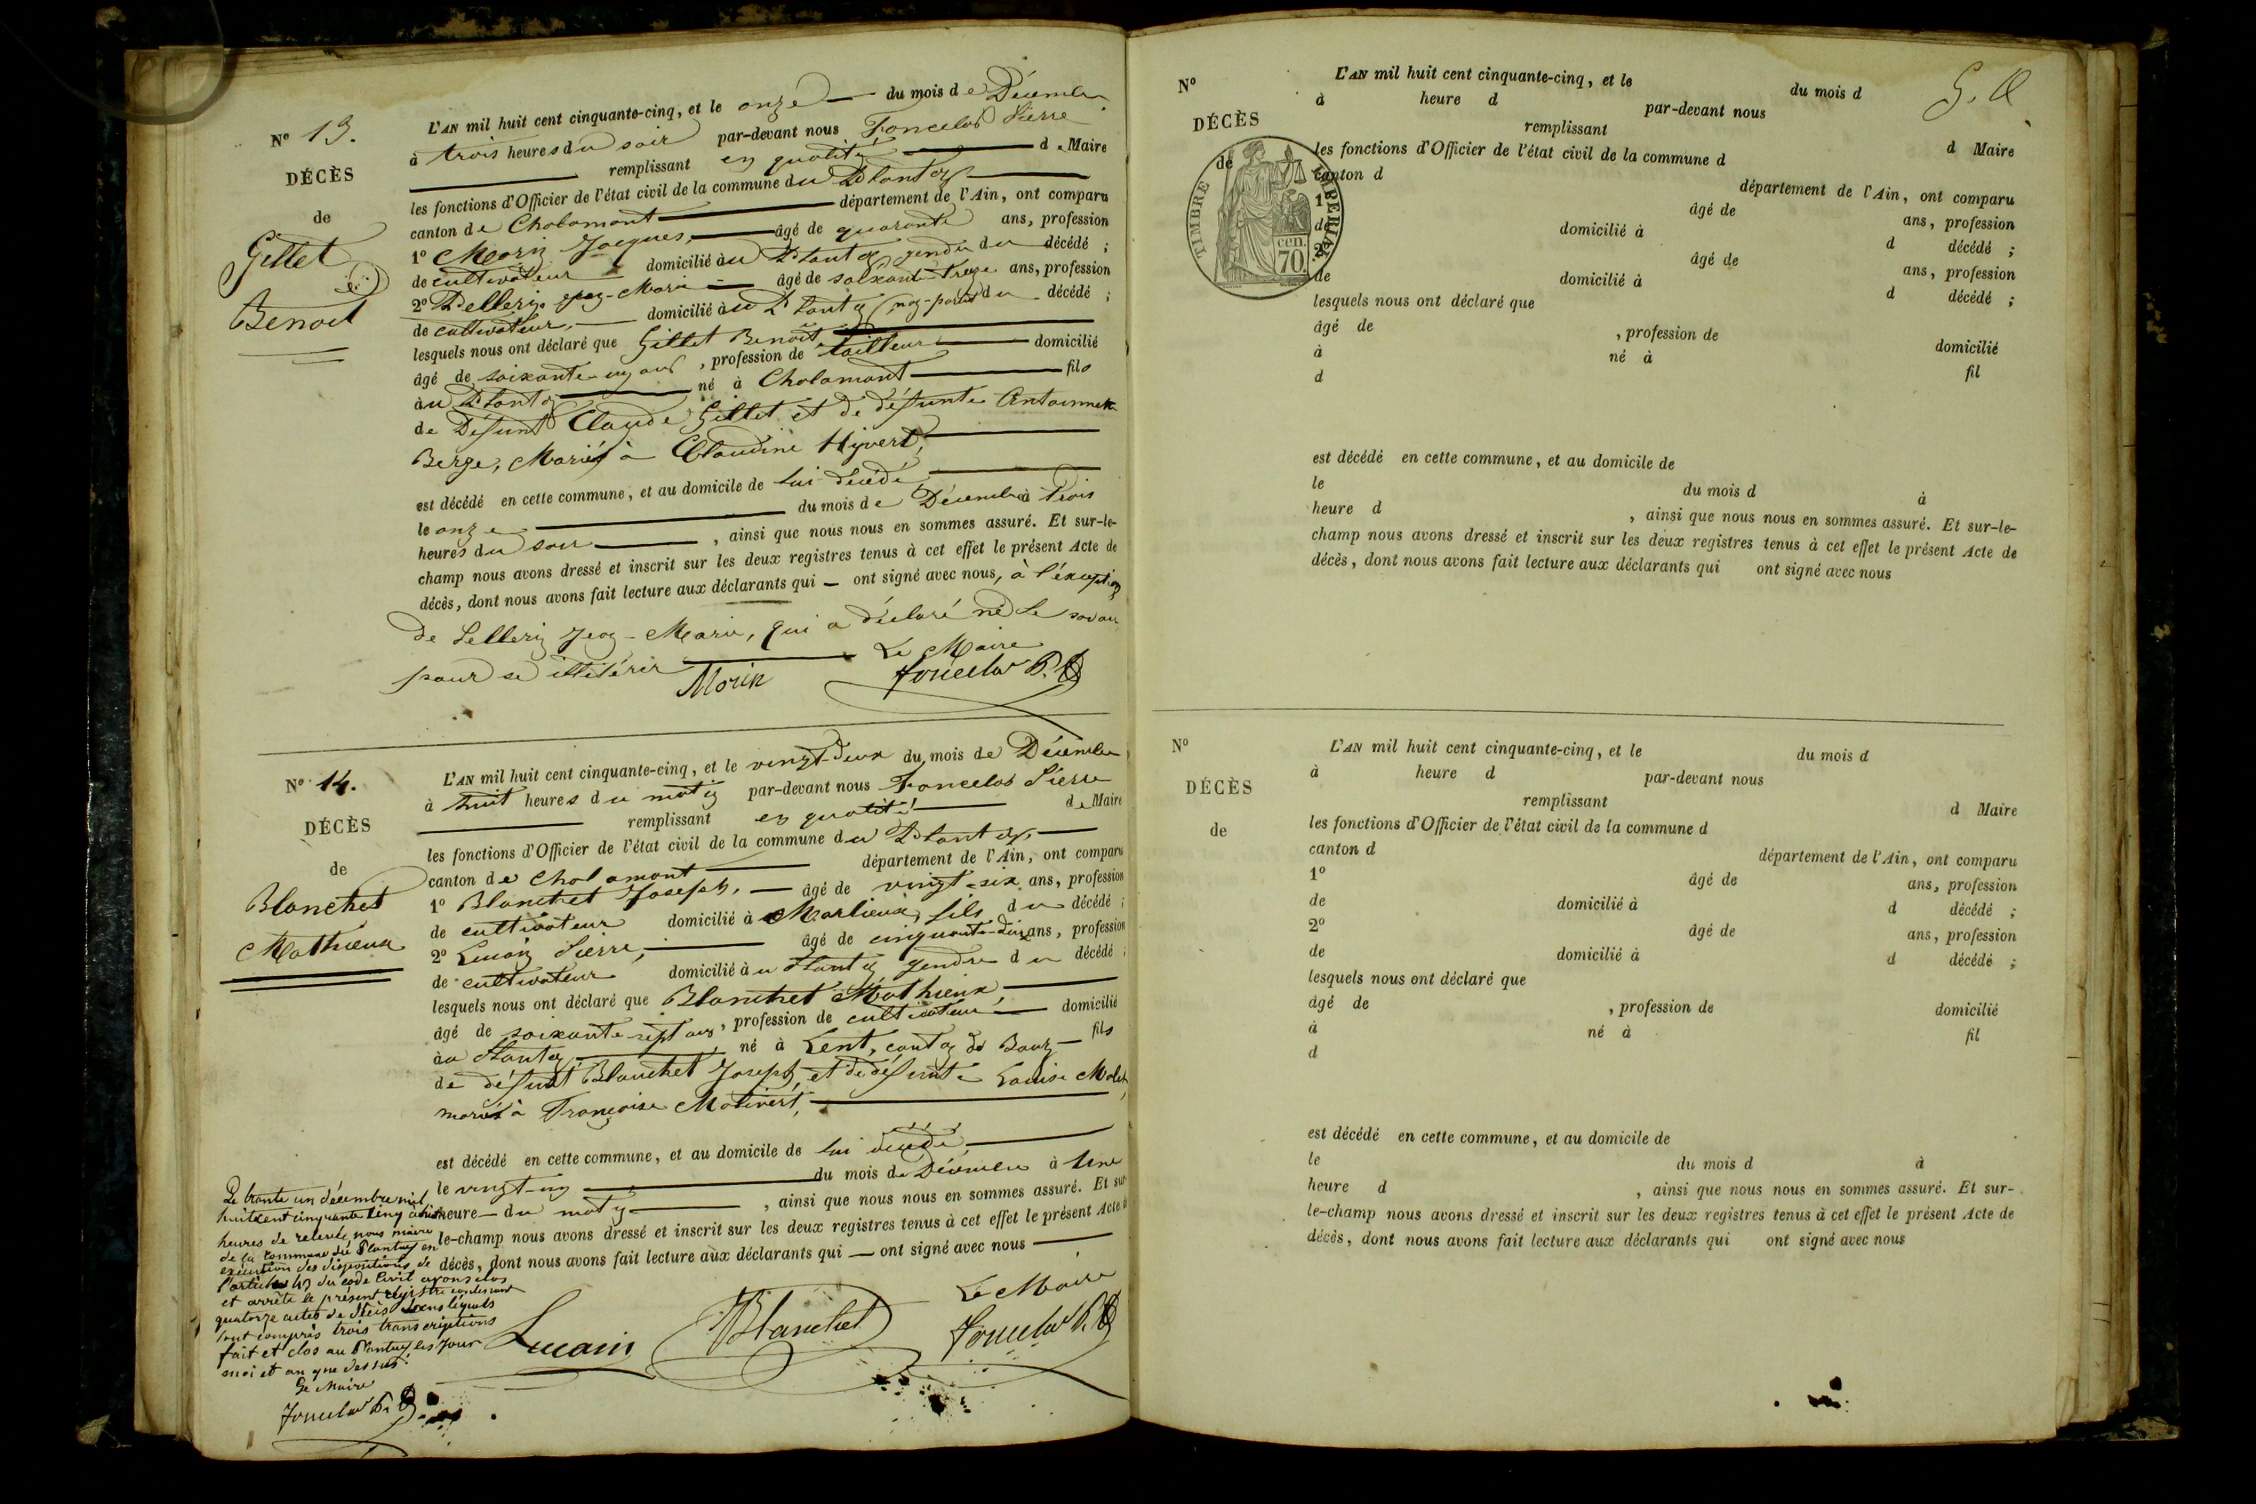 N° 13.
DÉCÈS
de
Gillet
Benoit
L'AN mil huit cent cinquante-cinq, et le onze du mois de Décembre
à trois heures du soir par-devant nous Foncelas Pierre
remplissant en qualité de Maire
les fonctions d'Officier de l'état civil de la commune du Plantay
canton de Chalamont département de l'Ain, ont comparu
1° Morin Jacques, âgé de quarante ans, profession
de cultivateur domicilié au Plantay gendre du décédé ;
2° Pellerin Jean-Marie âgé de soixante-treize ans, profession
de cultivateur, domicilié au Plantay, non-parent du décédé ;
lesquels nous ont déclaré que Gillet Benoît
âgé de soixante un ans, profession de tailleur domicilié
au Plantay né à Chalamont fils
de Defunt Claude Gillet et de défunte Antoinette
Berge, Marié à Claudine Hyvert,
est décédé en cette commune, et au domicile de lui décédé
le onze du mois de Décembre à trois
heures du soir, ainsi que nous nous en sommes assuré. Et sur-le-
champ nous avons dressé et inscrit sur les deux registres tenus à cet effet le présent Acte de
décès, dont nous avons fait lecture aux déclarants qui — ont signé avec nous, à l'exception
de Pellerin Jean-Marie, qui a déclaré ne le savoir
pour se illitérer
Le Maire
Morin Foncelas P.
N° 14.
DÉCÈS
de
Blanchet
Mathieux
L'AN mil huit cent cinquante-cinq, et le vingt-deux du mois de Décembre
à huit heures du matin par-devant nous Foncelas Pierre
remplissant en qualité de Maire
les fonctions d'Officier de l'état civil de la commune du Plantay,
canton de Chalamont département de l'Ain, ont comparu
1° Blanchet Joseph, — âgé de vingt-six ans, profession
de cultivateur domicilié à Marlieux, fils du décédé ;
2° Lucain Pierre, âgé de cinquante-deux ans, profession
de cultivateur domicilié au Plantay gendre du décédé ;
lesquels nous ont déclaré que Blanchet Mathieux,
âgé de soixante-sept ans, profession de cultivateur domicilié
au Plantay, né à Lent, canton de Bourg — fils
de défunt Blanchet Joseph, et de défunte Louise
marié à Françoise Mativert,
est décédé en cette commune, et au domicile de lui décédé,
le vingt-un du mois de Décembre à Une
heure — du matin, ainsi que nous nous en sommes assuré. Et sur-
le-champ nous avons dressé et inscrit sur les deux registres tenus à cet effet le présent Acte de
décès, dont nous avons fait lecture aux déclarants qui — ont signé avec nous
Le Maire
Lucain Blanchet Foncelas P.
Le trente un décembre mil
huit cent cinquante cinq à huit
heures de relevée nous maire
de la commune du Plantay en
exécution des dispositions de
l'article 43 du code Civil avons clos
et arrêté le présent registre contenant
quatorze actes de décès dans lesquels
sont compris trois transcriptions
fait et clos au Plantay les jour
moi et an que dessus.
Le Maire
Foncelas P.
N°
DÉCÈS
de
TIMBRE IMPÉRIAL
70 cen.
L'AN mil huit cent cinquante-cinq, et le du mois d
à heure d par-devant nous
remplissant d Maire
les fonctions d'Officier de l'état civil de la commune d
canton d département de l'Ain, ont comparu
1° âgé de ans, profession
de domicilié à d décédé ;
2° âgé de ans, profession
de domicilié à d décédé ;
lesquels nous ont déclaré que
âgé de , profession de domicilié
à né à fil
d
est décédé en cette commune, et au domicile de
le du mois d à
heure d , ainsi que nous nous en sommes assuré. Et sur-le-
champ nous avons dressé et inscrit sur les deux registres tenus à cet effet le présent Acte de
décès, dont nous avons fait lecture aux déclarants qui ont signé avec nous
N°
DÉCÈS
de
L'AN mil huit cent cinquante-cinq, et le du mois d
à heure d par-devant nous
remplissant d Maire
les fonctions d'Officier de l'état civil de la commune d
canton d département de l'Ain, ont comparu
1° âgé de ans, profession
de domicilié à d décédé ;
2° âgé de ans, profession
de domicilié à d décédé ;
lesquels nous ont déclaré que
âgé de , profession de domicilié
à né à fil
d
est décédé en cette commune, et au domicile de
le du mois d à
heure d , ainsi que nous nous en sommes assuré. Et sur-
le-champ nous avons dressé et inscrit sur les deux registres tenus à cet effet le présent Acte de
décès, dont nous avons fait lecture aux déclarants qui ont signé avec nous